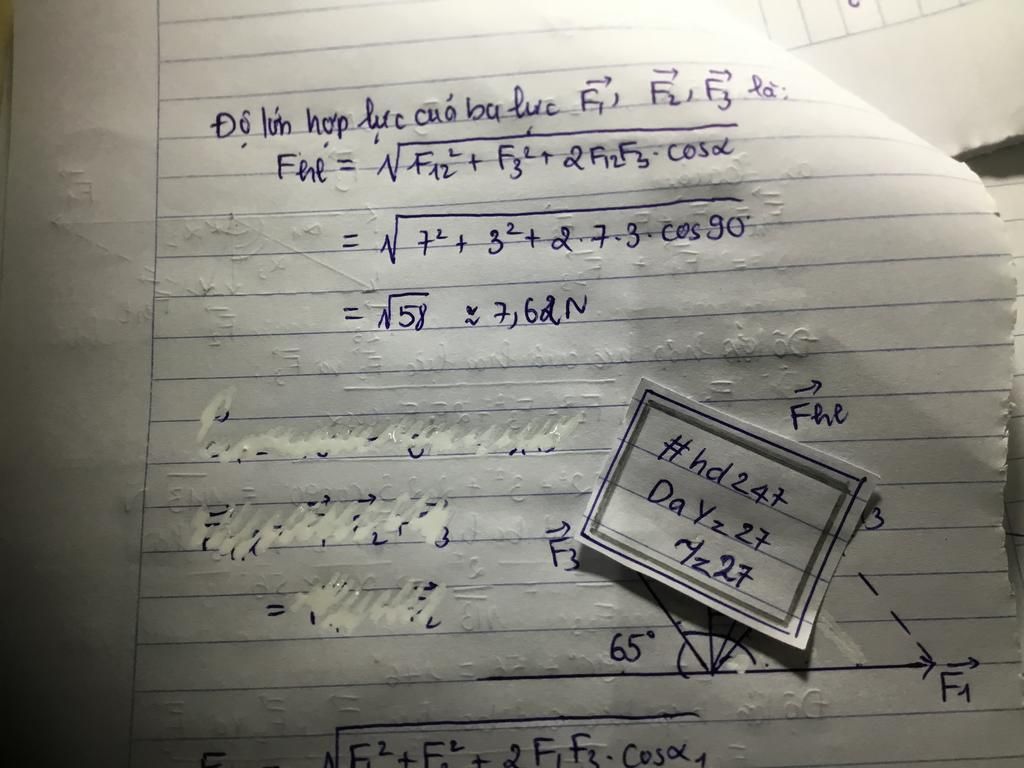 Độ lớn hợp lực của ba lực F₁, F₂, F₃ là:
Fhl = √F₁₂² + F₃² + 2F₁₂F₃.cosα
= √7² + 3² + 2.7.3.cos90
= √58 ≈ 7,62N
Fhl
#hd247
Dayz27
~/z27
3
F₃
=
65°
F₁
√F₁² + F₃² + 2F₁F₃.cosα₁